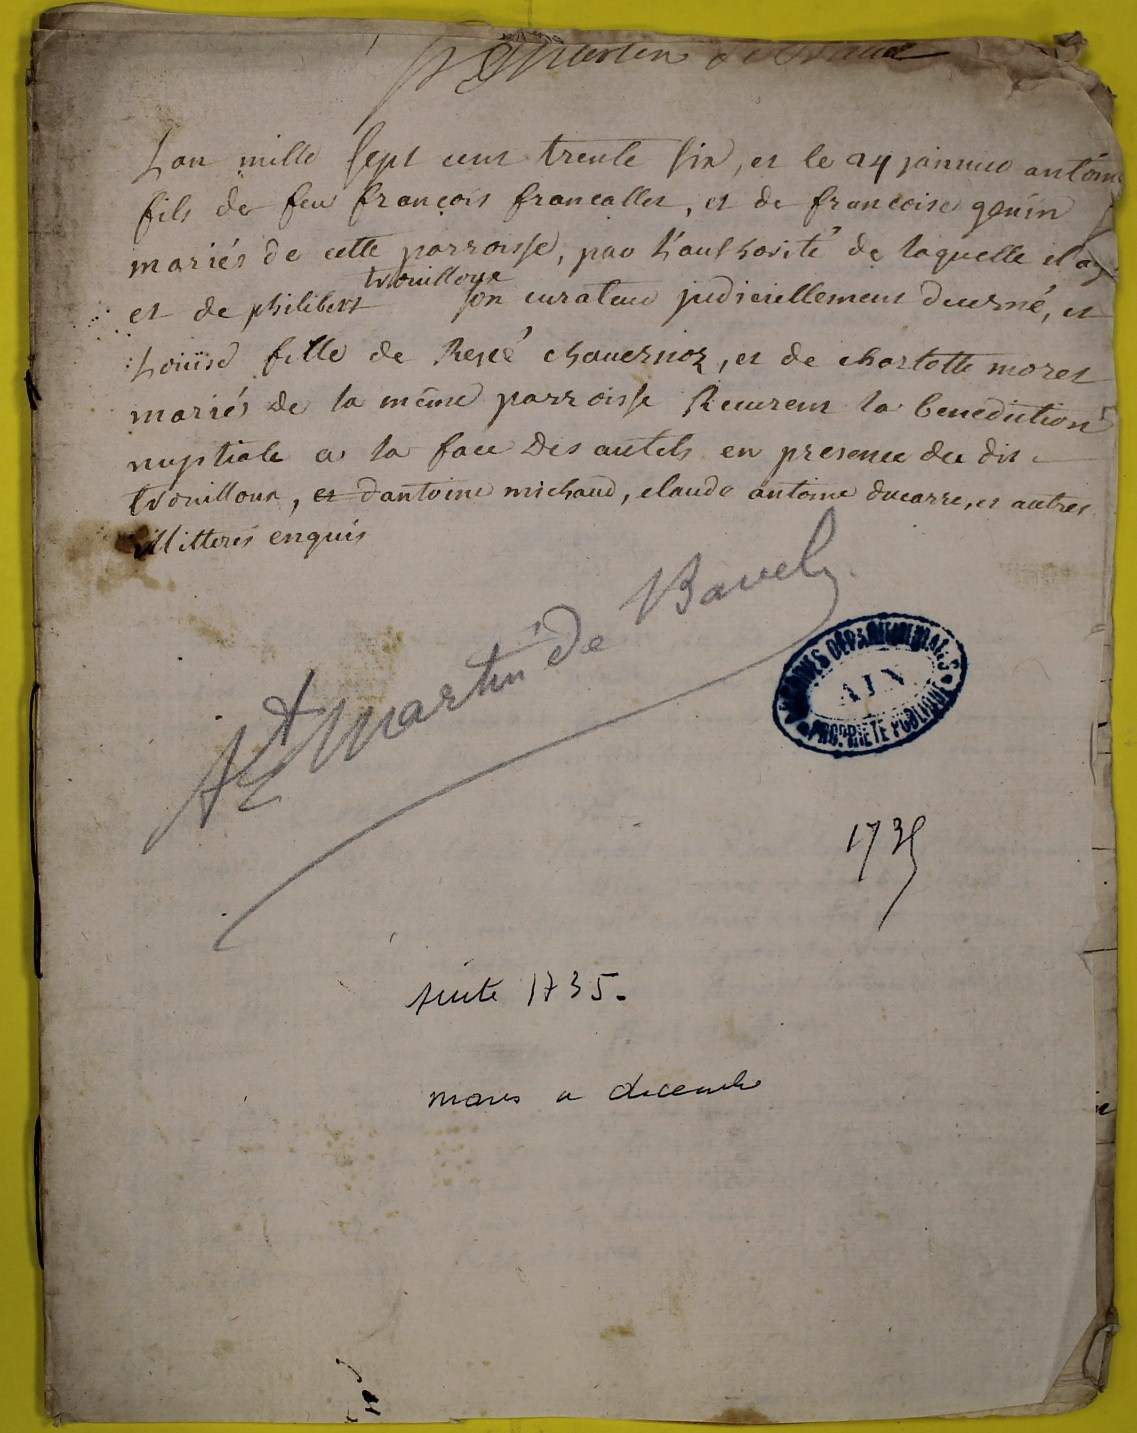 St Martin de Bavel
Lan mille sept cent trente six, et le 24 janvier antoine
fils de feu françois francallet, et de francoise genin
mariés de cette parroisse, par l'authorité de laquelle il agit
et de philibert trouilloux son curateur judiciellement decerné, et
Louise fille de René chavernoz, et de charlotte moret
mariés de la même parroisse Recurent la benediction
nuptiale a la face des autels en presence du dit
trouilloux, et dantoine michaud, claude antoine ducarre, et autres
illitterés enquis
St Martin de Bavel
ARCHIVES DÉPARTEMENTALES
AIN
PROPRIÉTÉ PUBLIQUE
1735
suite 1735.
mars a decembre